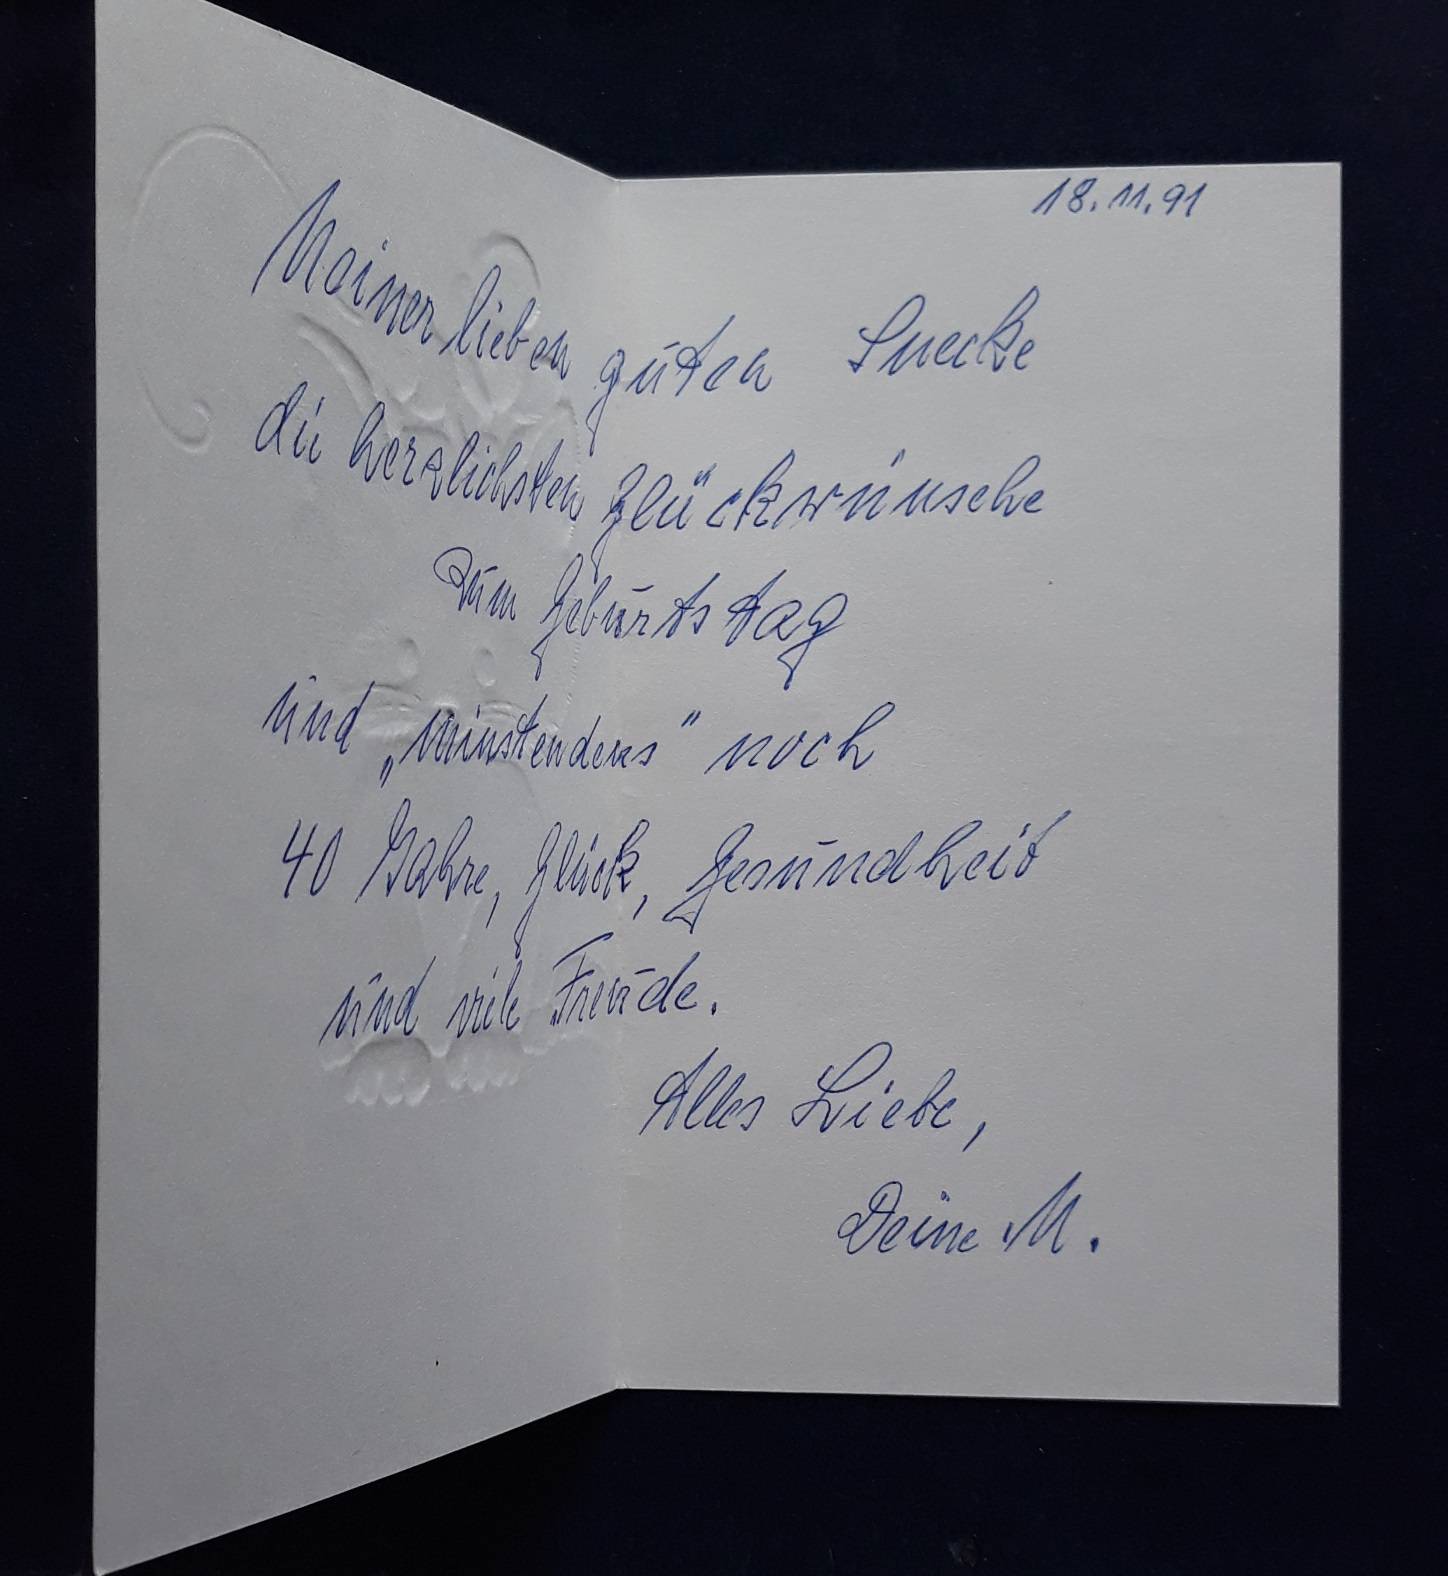 18.11.91
Meiner lieben guten Snecke
die herzlichsten Glückwünsche
zum Geburtstag
und „minstendens" noch
40 Jahre, Glück, Gesundheit
und viele Freude.
Alles Liebe,
Deine M.